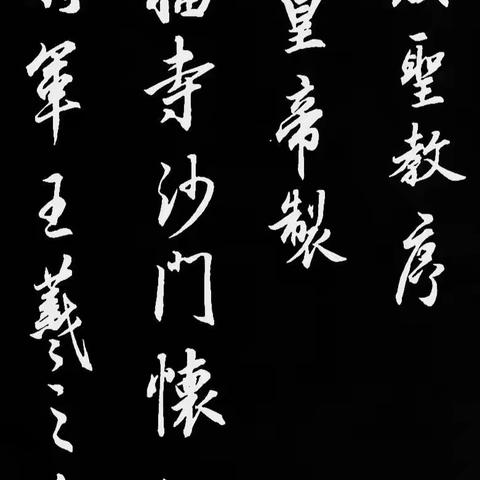 聖教序
皇帝製
福寺沙門懷
軍王羲之